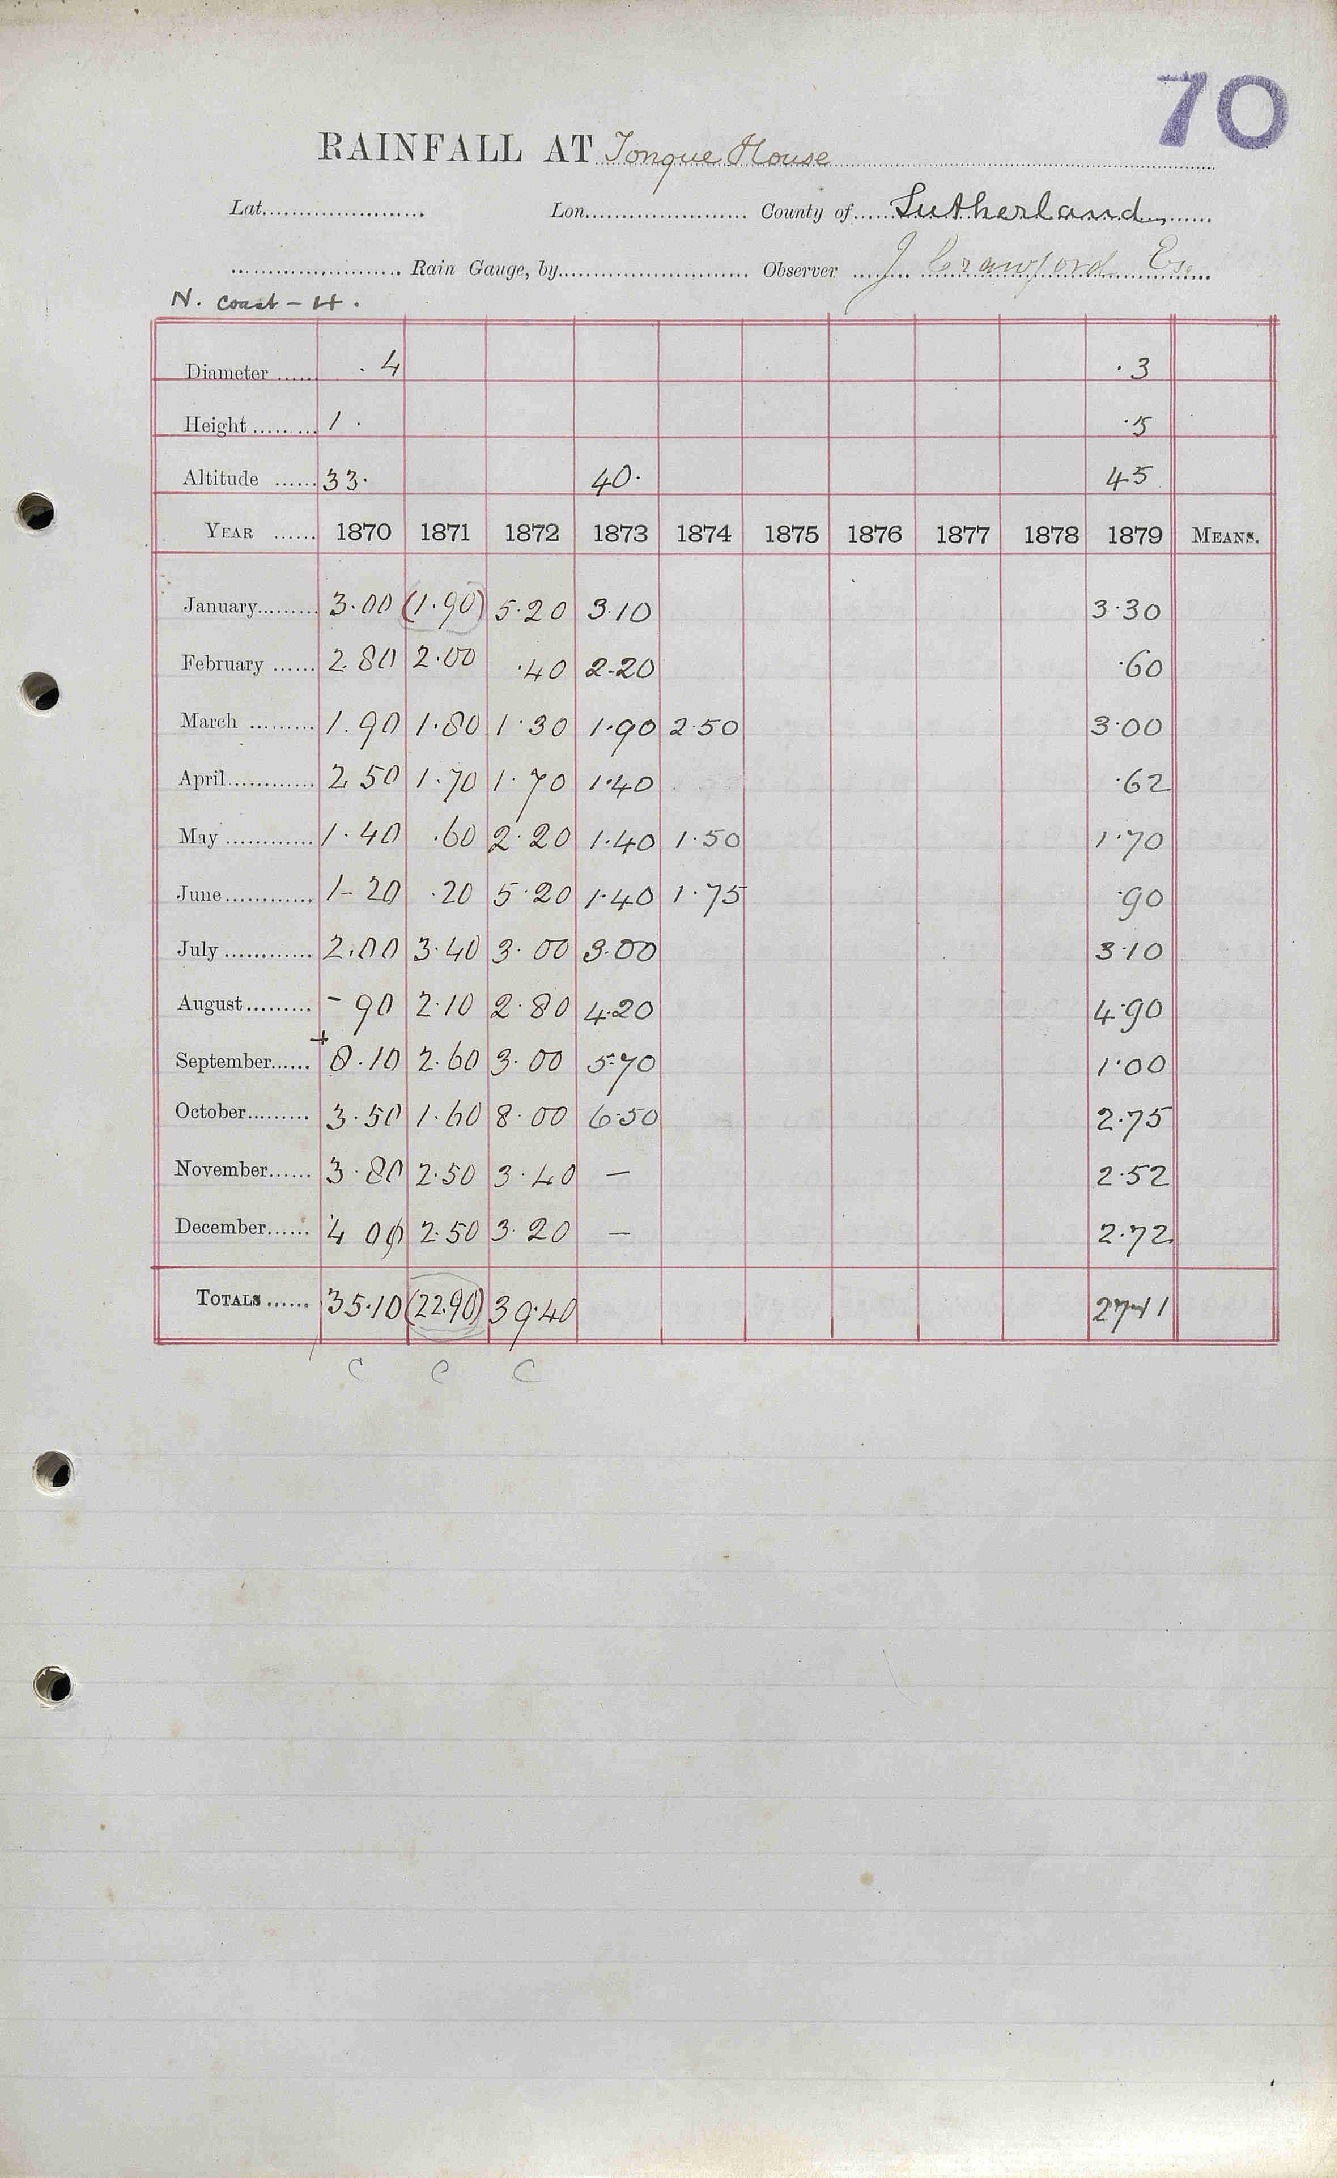 70
RAINFALL AT Tongue House
Lat. Lon. County of Sutherland
Rain Gauge, by Observer J Crawford Esq
N. coast - H.
Diameter .4 .3
Height 1. .5
Altitude 33. 40. 45
YEAR 1870 1871 1872 1873 1874 1875 1876 1877 1878 1879 MEANS.
January 3.00 (1.90) 5.20 3.10 3.30
February 2.80 2.00 .40 2.20 .60
March 1.90 1.80 1.30 1.90 2.50 3.00
April 2.50 1.70 1.70 1.40 .62
May 1.40 .60 2.20 1.40 1.50 1.70
June 1-20 .20 5.20 1.40 1.75 .90
July 2.00 3.40 3.00 3.00 3.10
August -90 2.10 2.80 4.20 4.90
September + 8.10 2.60 3.00 5.70 1.00
October 3.50 1.60 8.00 6.50 2.75
November 3.80 2.50 3.40 — 2.52
December 4 00 2.50 3.20 — 2.72
TOTALS 35.10 (22.90) 39.40 27.11
C C C